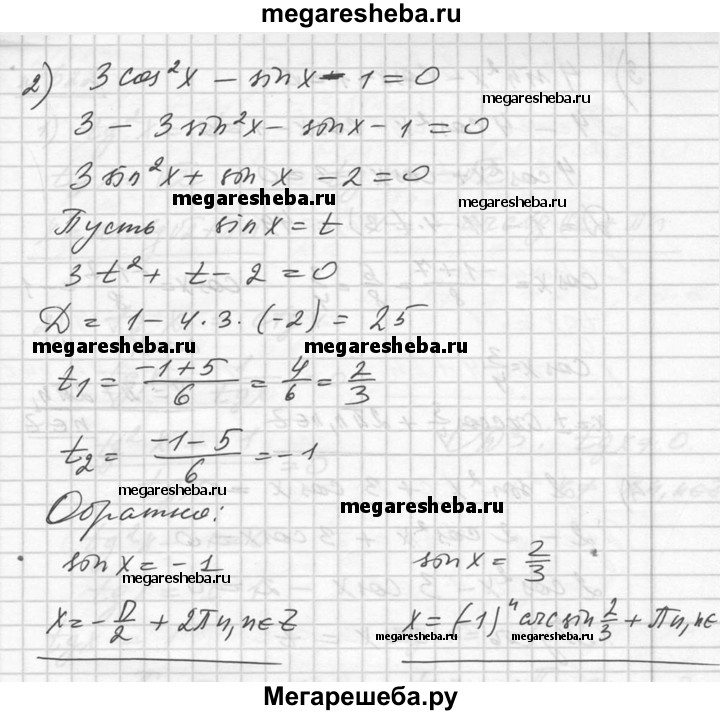 megaresheba.ru
2) 3 cos²x – sin x – 1 = 0
megaresheba.ru
3 – 3 sin²x – sin x – 1 = 0
3 sin²x + sin x – 2 = 0
megaresheba.ru megaresheba.ru
Пусть sin x = t
3t² + t – 2 = 0
D = 1 – 4 · 3 · (-2) = 25
megaresheba.ru megaresheba.ru
t₁ = (-1+5)/6 = 4/6 = 2/3
t₂ = (-1-5)/6 = -1
megaresheba.ru
Обратно: megaresheba.ru
sin x = -1 sin x = 2/3
megaresheba.ru
x = -π/2 + 2πn, n∈Z x = (-1)ⁿ arcsin 2/3 + πn, n∈
megaresheba.ru megaresheba.ru
Мегарешеба.ру